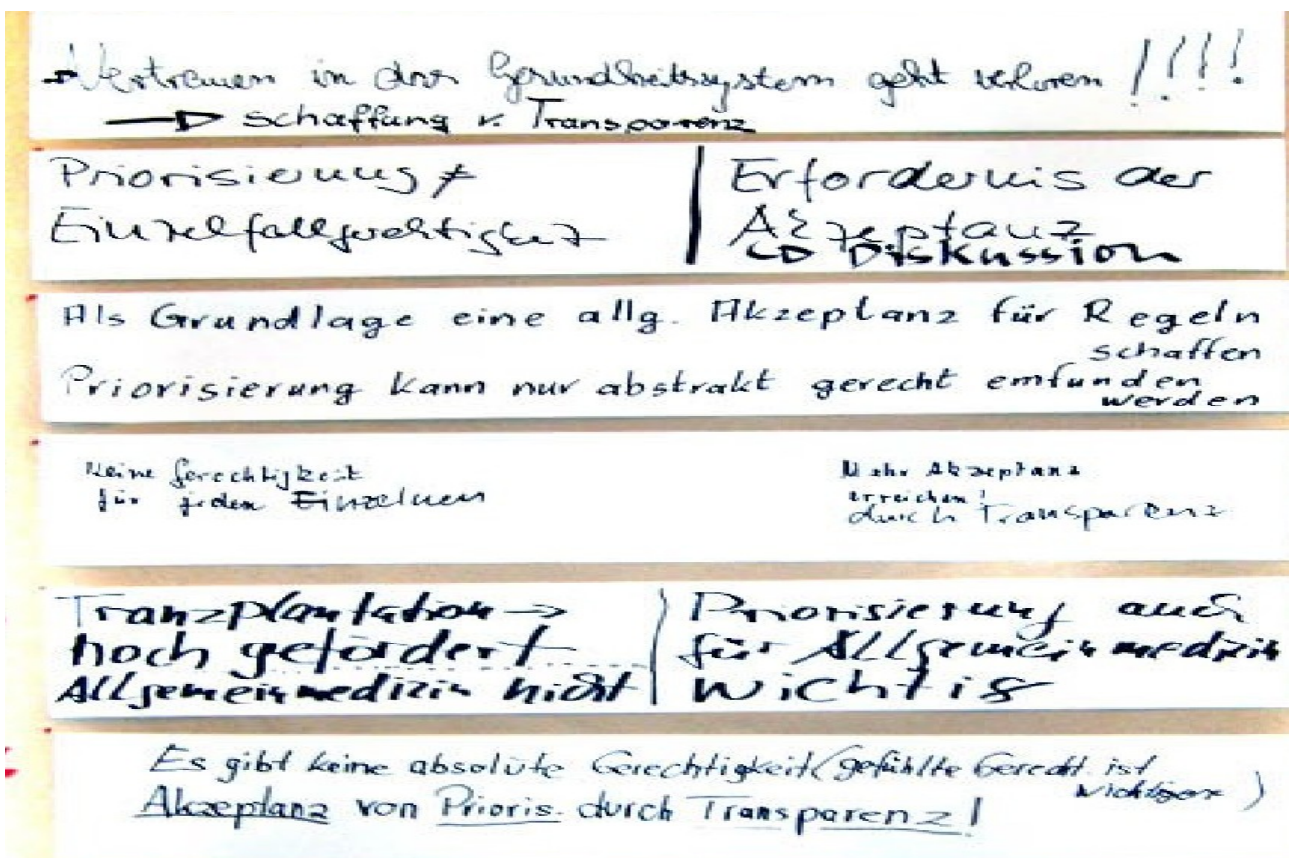 → Vertrauen in das Gesundheitssystem geht verloren !!!!
→ Schaffung v. Transparenz
Priorisierung ≠
Einzelfallgerechtigkeit
Erfordernis der
Akzeptanz
↳ Diskussion
Als Grundlage eine allg. Akzeptanz für Regeln
schaffen
Priorisierung kann nur abstrakt gerecht emfunden
werden
Keine Gerechtigkeit
für jeden Einzelnen
Mehr Akzeptanz
erreichen!
durch Transparenz
Tranzplantation →
hoch gefördert
Allgemeinmedizin nicht
Priorisierung auch
für Allgemeinmedizin
wichtig
Es gibt keine absolute Gerechtigkeit (gefühlte Gerecht. ist
wichtiger)
Akzeptanz von Prioris. durch Transparenz!